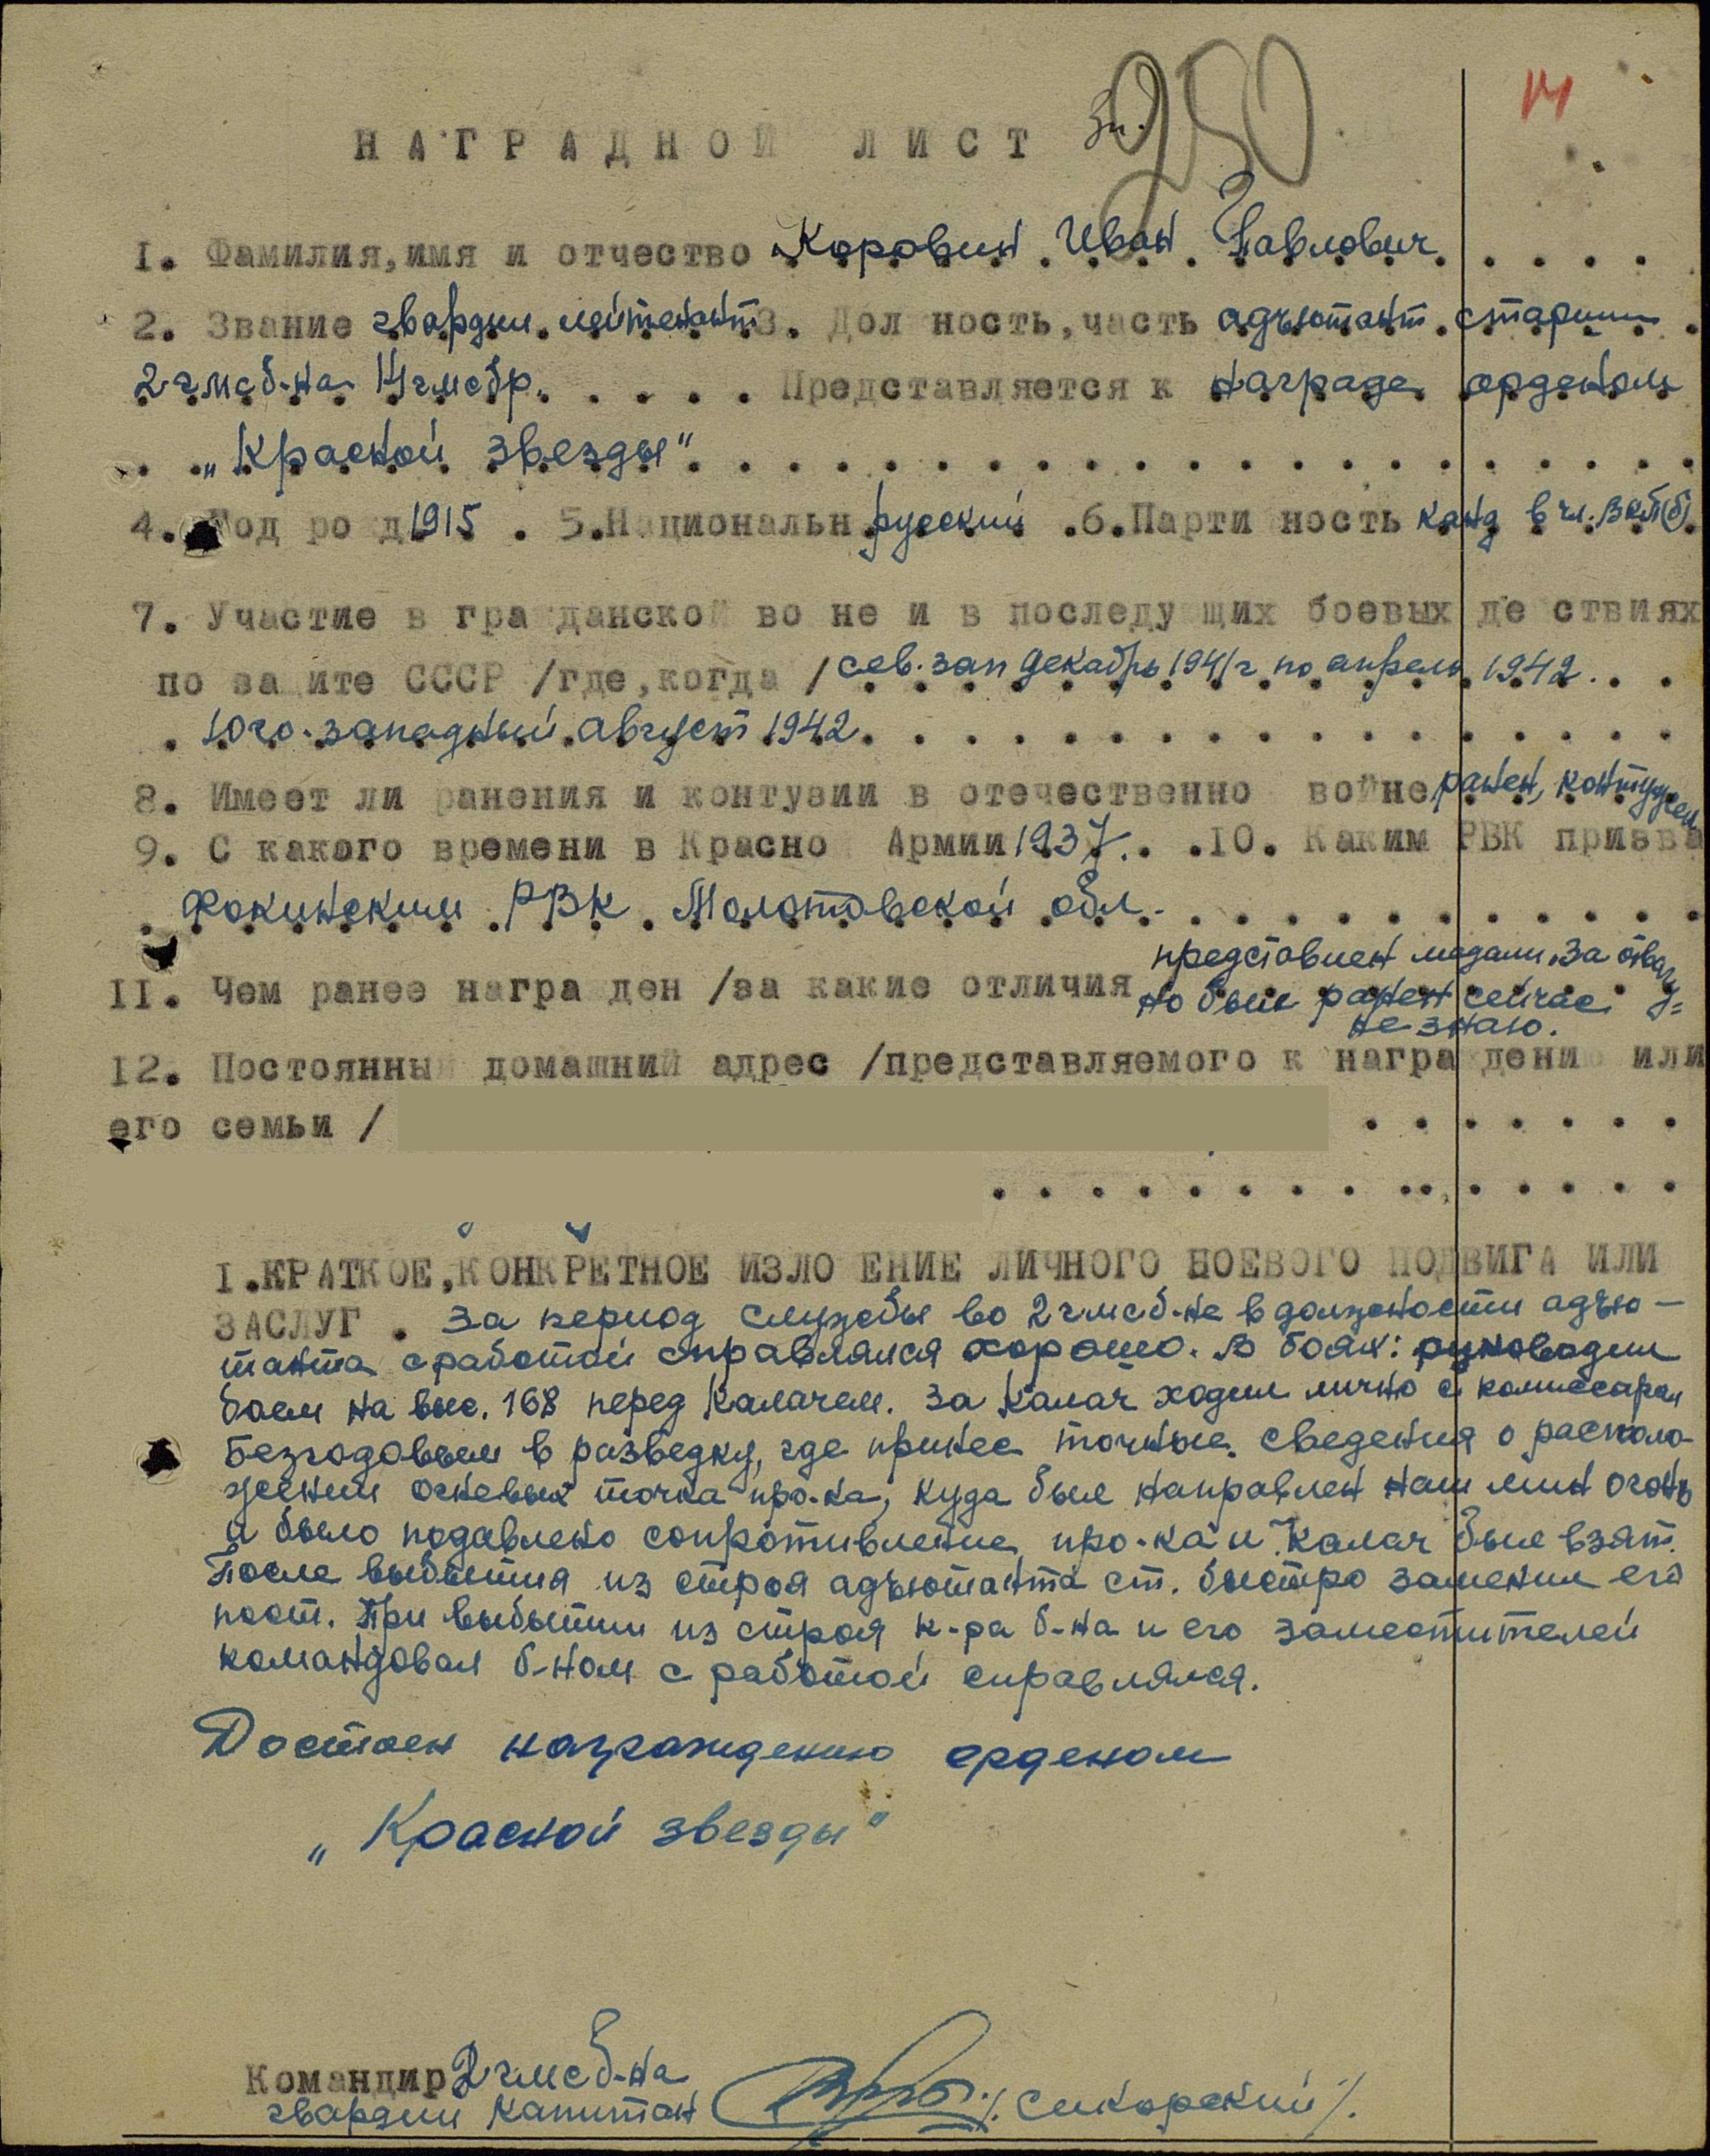 250
14
НАГРАДНОЙ ЛИСТ
1. Фамилия,имя и отчество Коровин Иван Павлович
2. Звание гвардии лейтенант 3. Дол ность,часть адъютант старший
2 гмсб-на 14 гмсбр. Представляется к награде орденом
„Красной звезды"
4. Год ро д 1915 . 5.Национальн русский .6.Парти ность канд в чл. ВКП(б)
7. Участие в гра данской во не и в последу щих боевых де ствиях
по за ите СССР /где,когда / сев. зап декабрь 1941 г по апрель 1942
Юго-западный август 1942
8. Имеет ли ранения и контузии в отечественно войне ранен, контужен
9. С какого времени в Красно Армии 1937. .10. Каким РВК призва
Фокинским РВК Молотовской обл.
11. Чем ранее награ ден /за какие отличия представлен медали „За отвагу"
но был ранен сейчас
не знаю.
12. Постоянный домашний адрес /представляемого к награ дению или
его семьи /
I.КРАТКОЕ,КОНКРЕТНОЕ ИЗЛО ЕНИЕ ЛИЧНОГО БОЕВОГО ПОДВИГА ИЛИ
ЗАСЛУГ . За период службы во 2 гмсб-не в должности адъю-
танта с работой справлялся хорошо. В боях: руководил
боем на выс. 168 перед Калачем. За Калач ходил лично с комиссаром
Безгодовым в разведку, где принес точные сведения о располо-
жении огневых точка про-ка, куда был направлен наш мин огонь
и было подавлено сопротивление про-ка и Калач был взят.
После выбытия из строя адъютанта ст. быстро заменил его
пост. При выбытии из строя к-ра б-на и его заместителей
командовал б-ном с работой справлялся.
Достоен награждению орденом
„Красной звезды"
Командир 2 гмсб-на
гвардии капитан /Сикорский/.